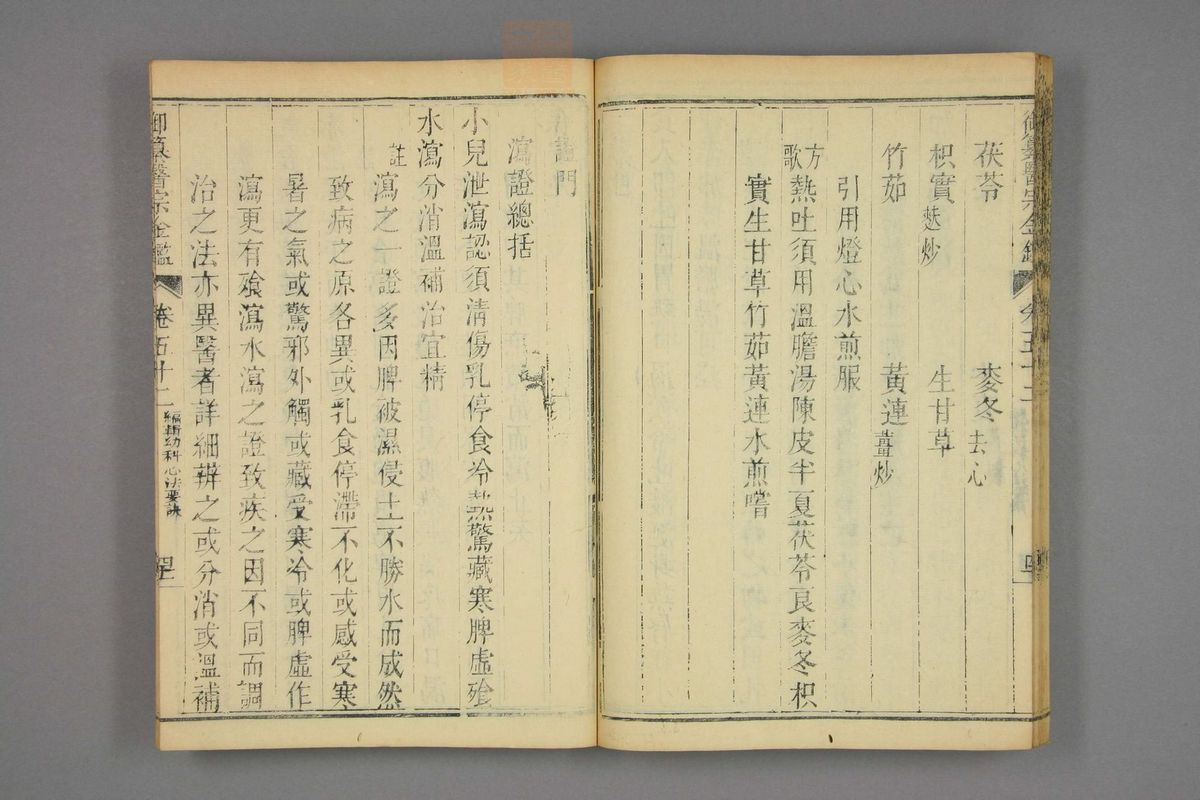 茯苓 麥冬去心
枳實麩炒 生甘草
竹茹 黃連薑炒
引用燈心水煎服
方歌 熱吐須用溫膽湯陳皮半夏茯苓良麥冬枳
實生甘草竹茹黃連水煎嘗
瀉證門
瀉證總括
小兒泄瀉認須清傷乳停食冷熱驚藏寒脾虛飱
水瀉分消溫補治宜精
註 瀉之一證多因脾被濕侵土不勝水而成然
致病之原各異或乳食停滯不化或感受寒
暑之氣或驚邪外觸或藏受寒冷或脾虛作
瀉更有飱瀉水瀉之證致疾之因不同而調
治之法亦異醫者詳細辨之或分消或溫補
御纂醫宗金鑑 卷五十二 編輯幼科心法要訣 四